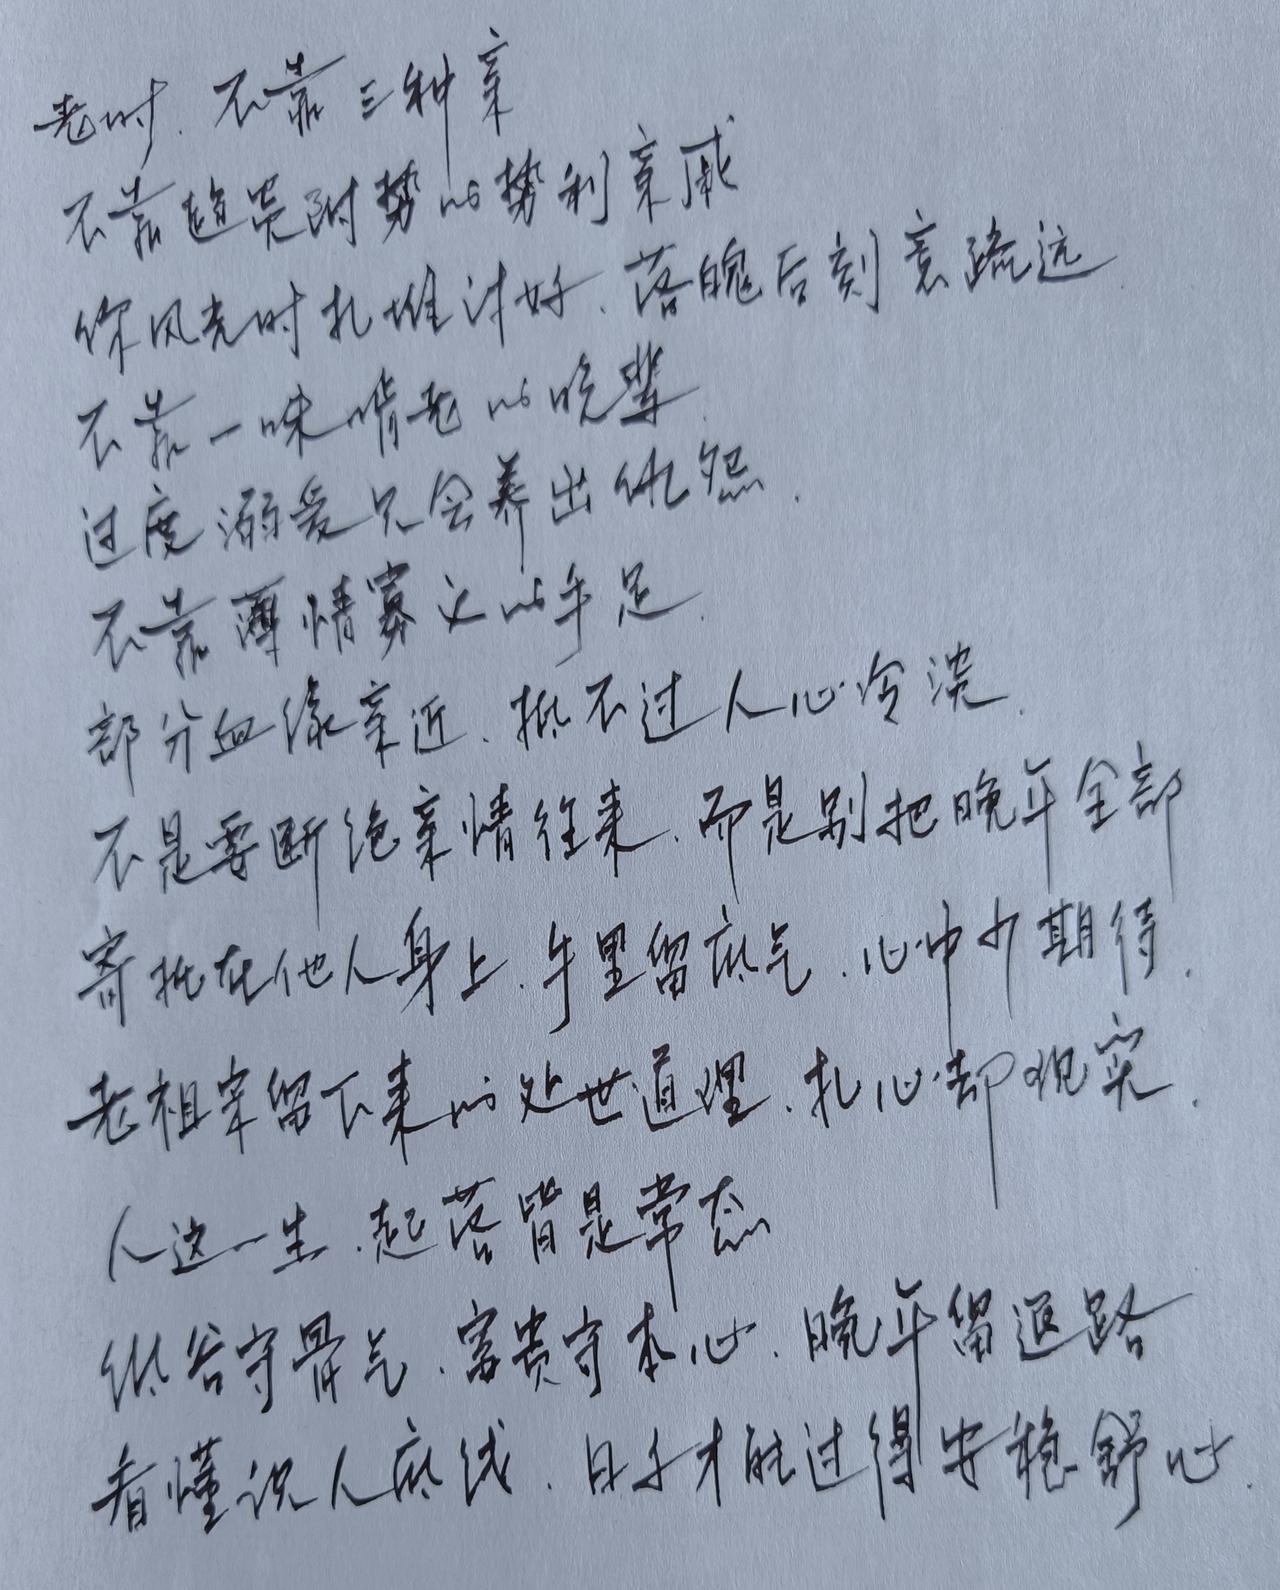 老时、不靠三种亲
不靠趋炎附势的势利亲戚
你风光时扎堆讨好、落魄后刻意疏远
不靠一味啃老的晚辈、
过度溺爱只会养出仇怨、
不靠薄情寡义的手足、
部分血缘亲近、抵不过人心冷淡、
不是要断绝亲情往来、而是别把晚年全部
寄托在他人身上、手里留底气、心中少期待、
老祖宗留下来的处世道理、扎心却现实、
人这一生、起落皆是常态
低谷守骨气、富贵守本心、晚年留退路
看懂识人底线、日子才能过得安稳舒心、